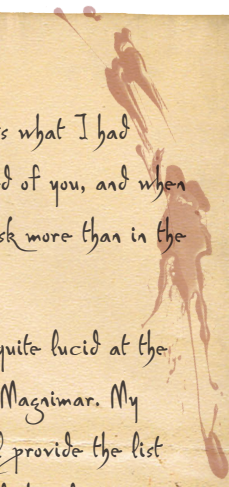 s what I had
d of you, and when
sk more than in the
quite lucid at the
Magnimar. My
l provide the list